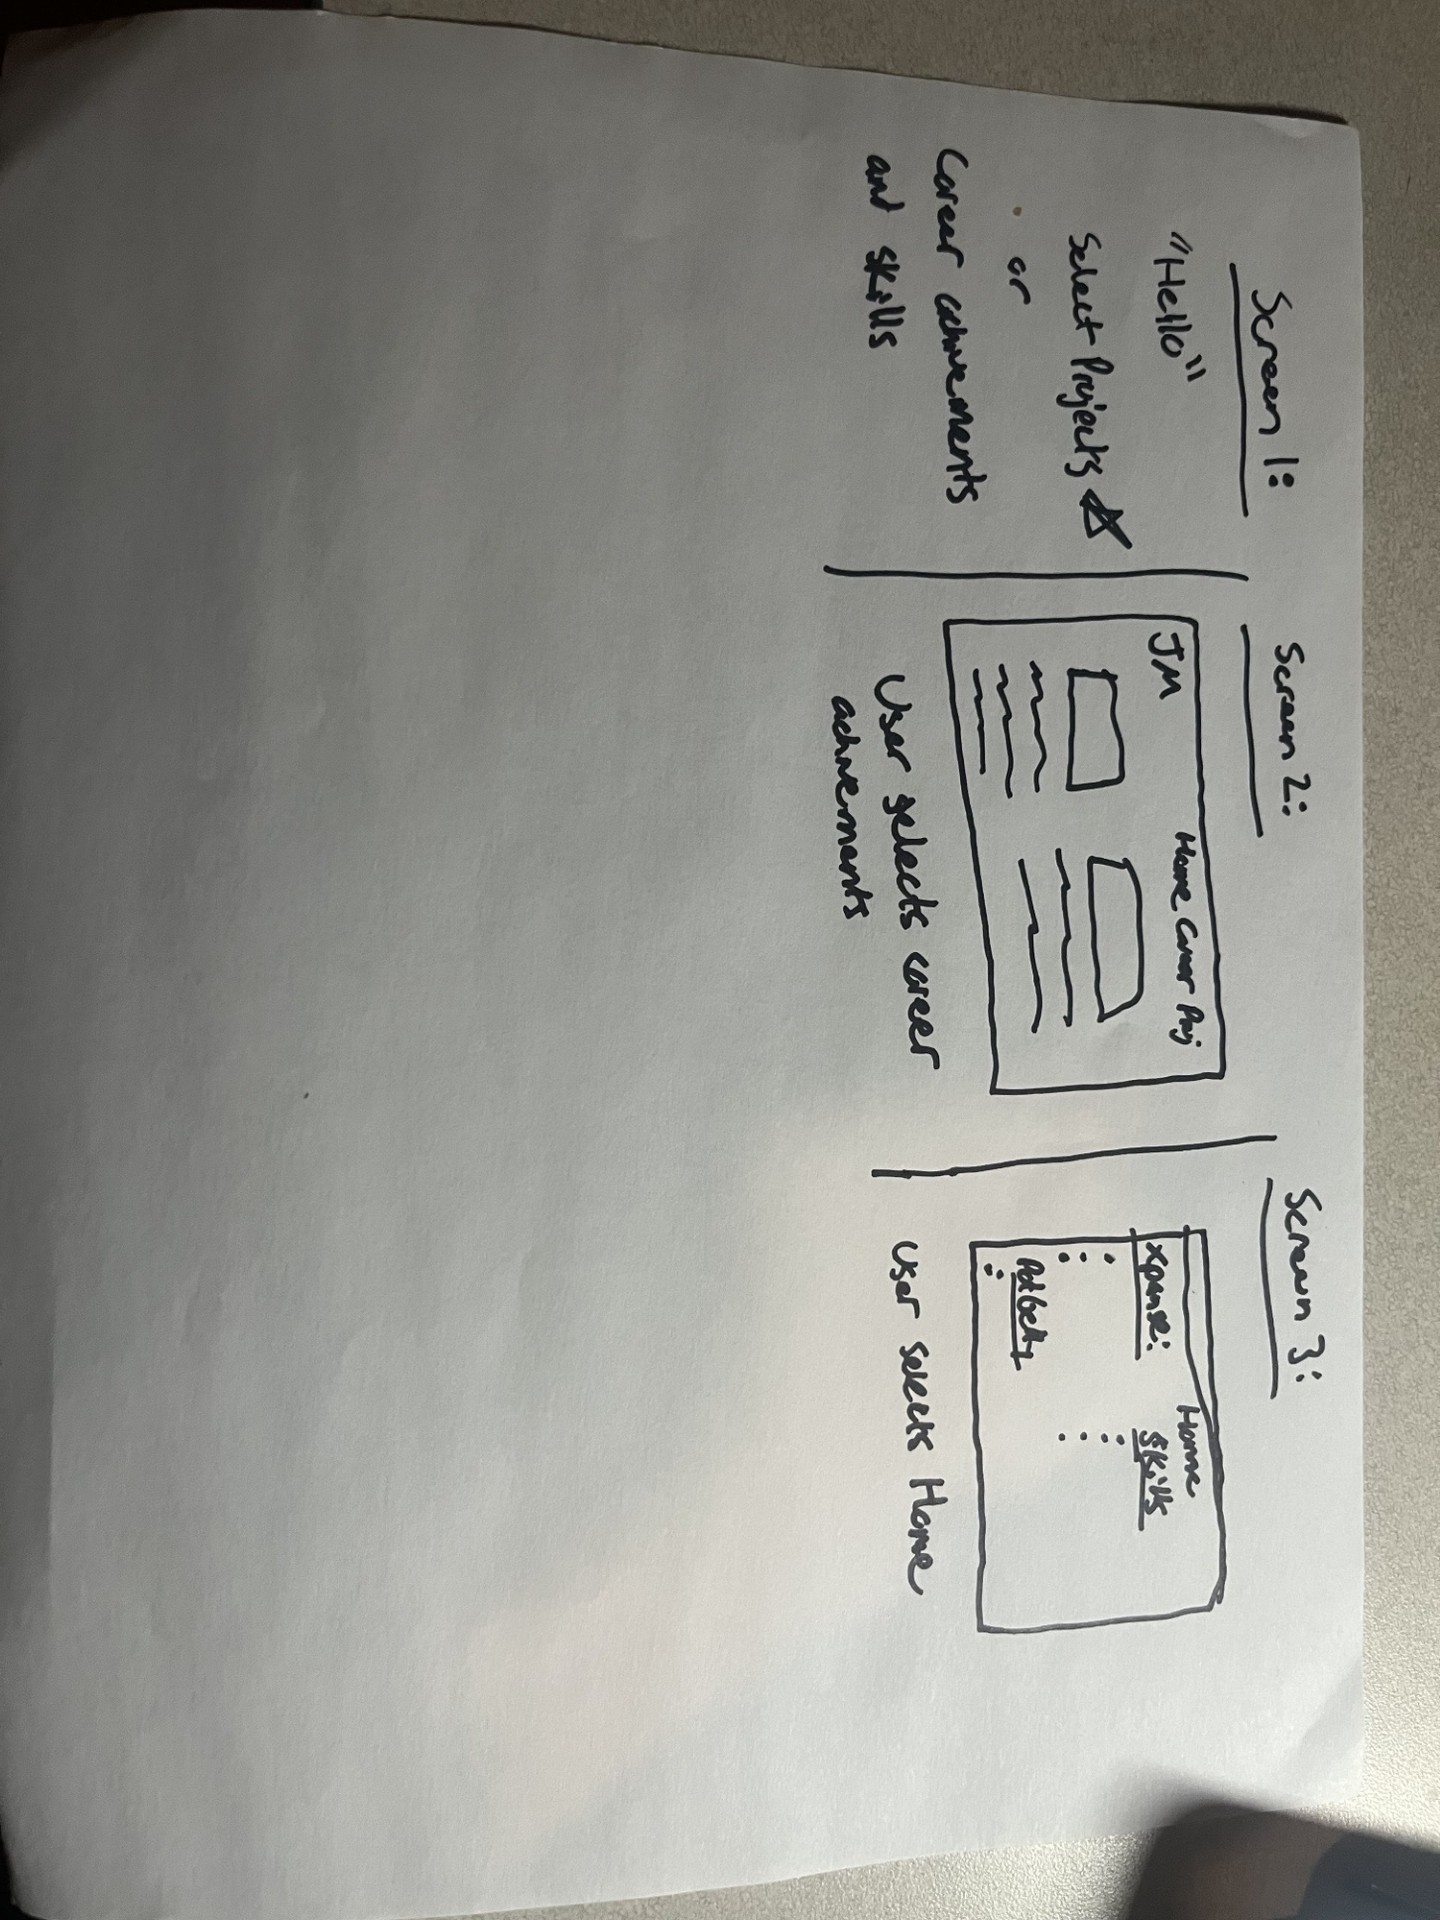 Screen 1:
"Hello"
Select Projects
or
Career achievements
and skills
Screen 2:
JM
Home Career Proj
User selects career
achievements
Screen 3:
Home
Xpanse:
Skills
Potbelly
User selects Home